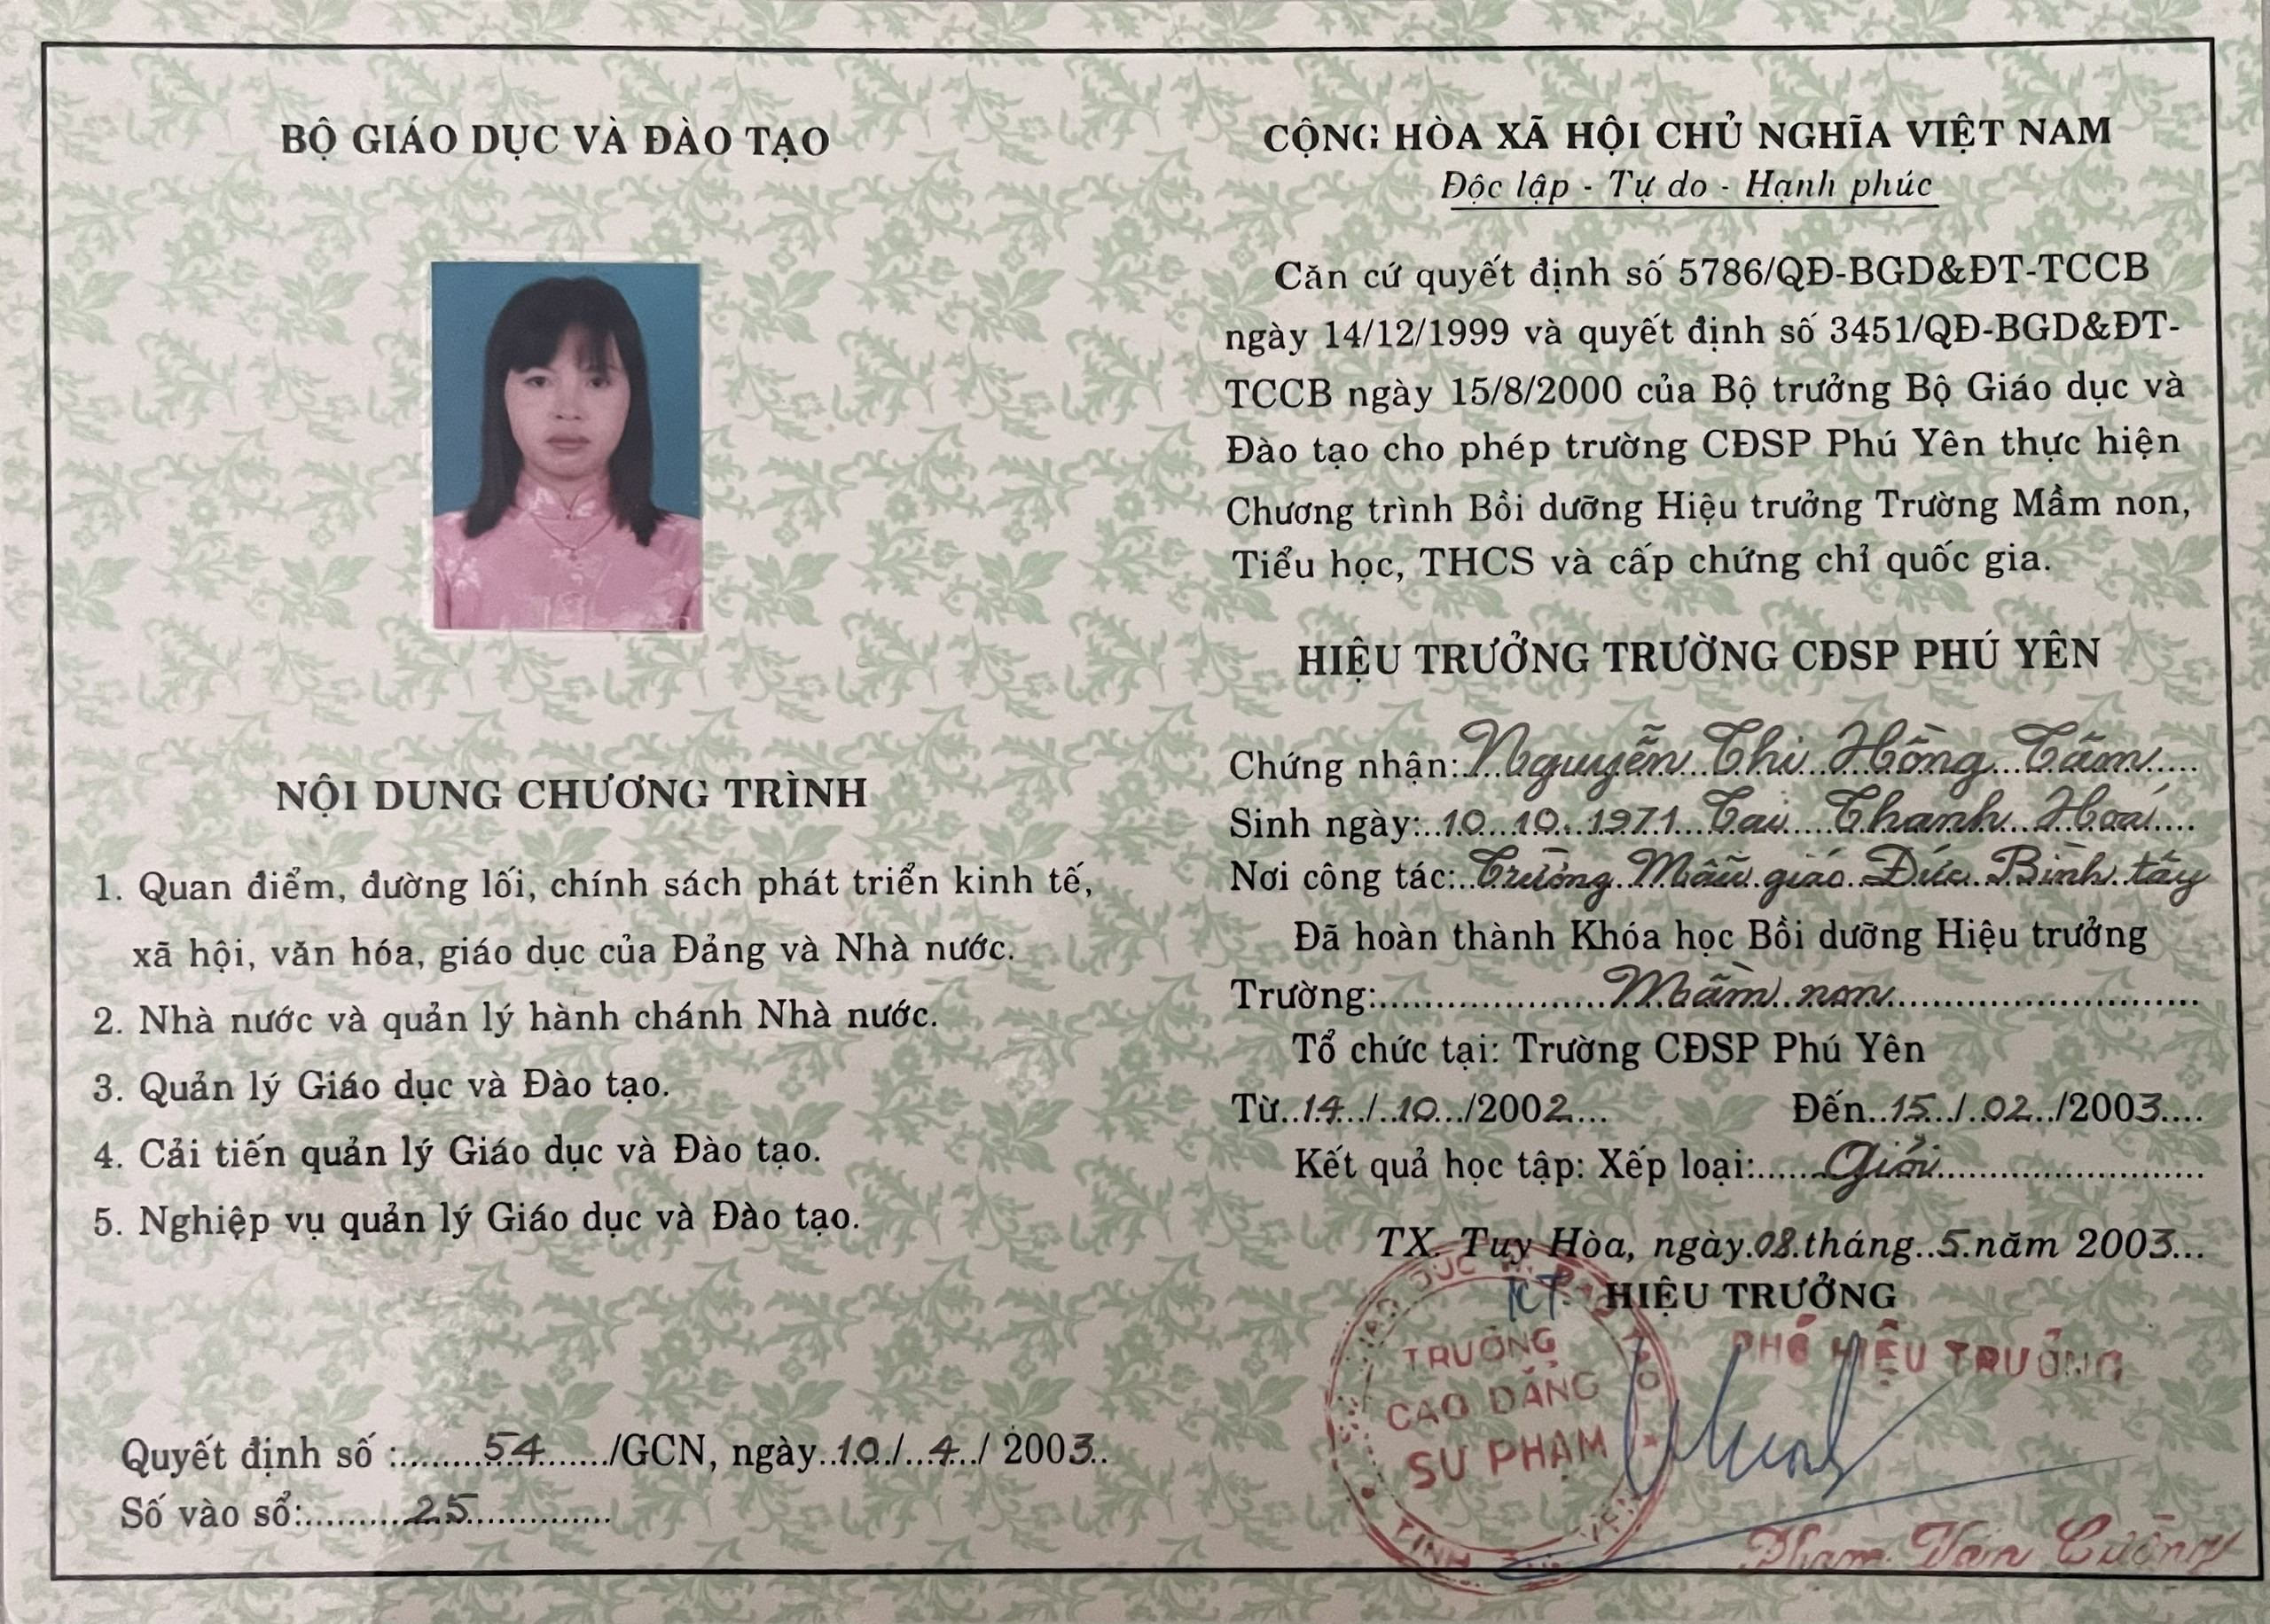 BỘ GIÁO DỤC VÀ ĐÀO TẠO
NỘI DUNG CHƯƠNG TRÌNH
1. Quan điểm, đường lối, chính sách phát triển kinh tế,
xã hội, văn hóa, giáo dục của Đảng và Nhà nước.
2. Nhà nước và quản lý hành chánh Nhà nước.
3. Quản lý Giáo dục và Đào tạo.
4. Cải tiến quản lý Giáo dục và Đào tạo.
5. Nghiệp vụ quản lý Giáo dục và Đào tạo.
Quyết định số :.........54......./GCN, ngày..10./...4.../ 2003..
Số vào sổ:..........25..............
CỘNG HÒA XÃ HỘI CHỦ NGHĨA VIỆT NAM
Độc lập - Tự do - Hạnh phúc
Căn cứ quyết định số 5786/QĐ-BGD&ĐT-TCCB
ngày 14/12/1999 và quyết định số 3451/QĐ-BGD&ĐT-
TCCB ngày 15/8/2000 của Bộ trưởng Bộ Giáo dục và
Đào tạo cho phép trường CĐSP Phú Yên thực hiện
Chương trình Bồi dưỡng Hiệu trưởng Trường Mầm non,
Tiểu học, THCS và cấp chứng chỉ quốc gia.
HIỆU TRƯỞNG TRƯỜNG CĐSP PHÚ YÊN
Chứng nhận: Nguyễn Thị Hồng Tâm
Sinh ngày: 10.10.1971 Tại Thanh Hoá
Nơi công tác: Trường Mẫu giáo Đức Bình tây
Đã hoàn thành Khóa học Bồi dưỡng Hiệu trưởng
Trường: Mầm non
Tổ chức tại: Trường CĐSP Phú Yên
Từ..14../..10.../2002... Đến..15../..02../2003....
Kết quả học tập: Xếp loại: Giỏi
TX. Tuy Hòa, ngày.08.tháng..5.năm 2003...
KT. HIỆU TRƯỞNG
PHÓ HIỆU TRƯỞNG
TRƯỜNG
CAO ĐẲNG
SƯ PHẠM
TỈNH
Phạm Văn Cường